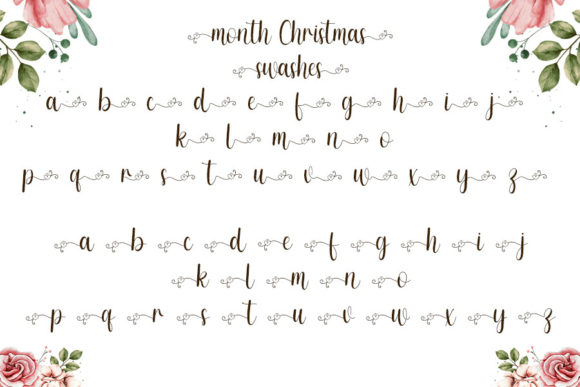 month Christmas
swashes
a b c d e f g h i j
k l m n o
p q r s t u v w x y z
a b c d e f g h i j
k l m n o
p q r s t u v w x y z